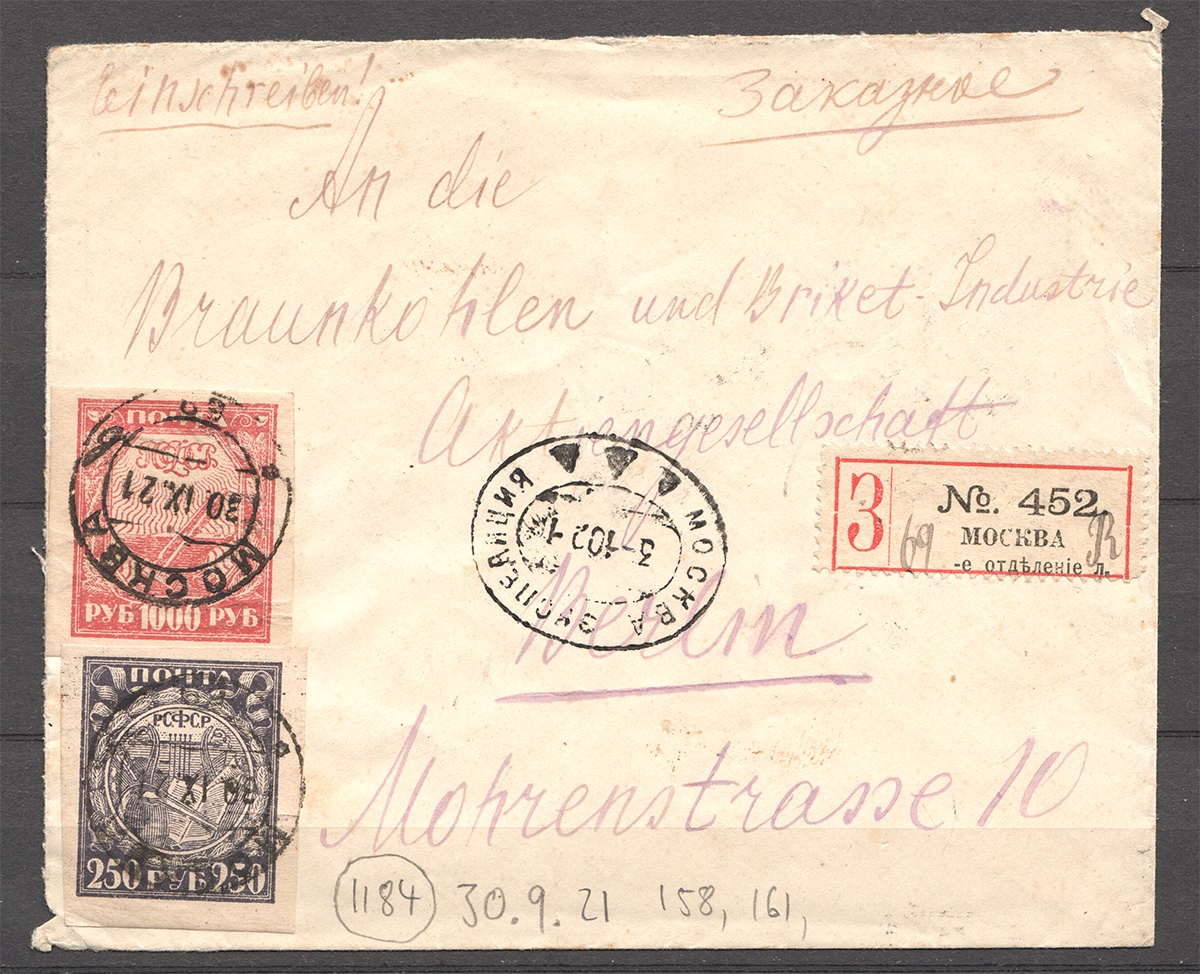 Einschreiben!
Заказное
An die
Braunkohlen und Briket-Industrie
Aktiengesellschaft
Berlin
Mohrenstrasse 10
ПОЧТА
МОСКВА
30 IX.21
РУБ 1000 РУБ
ПОЧТА
РСФСР
IX.21
250 РУБ 250
МОСКВА ЭКСПЕДИЦИЯ
3-1021
З
№. 452
69
МОСКВА
R
-е отдѣленіе л.
1184
30.9.21 158, 161,